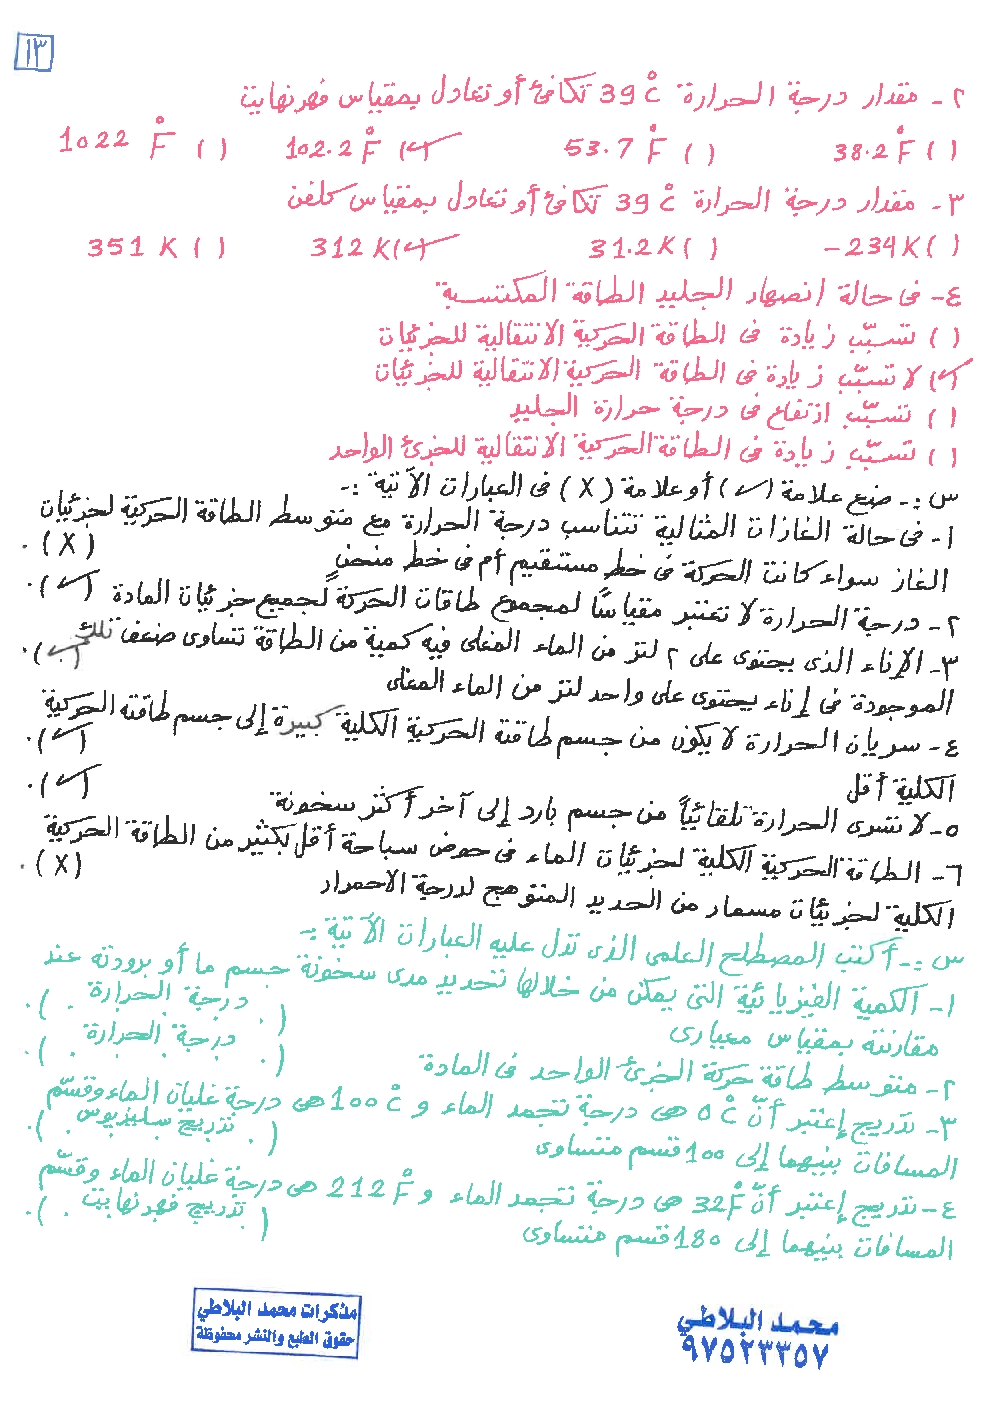 ١٣
٢- مقدار درجة الحرارة 39 °C تكافئ أو تعادل بمقياس فهرنهايت
( ) 38.2 °F ( ) 53.7 °F (✓) 102.2 °F ( ) 1022 °F
٣- مقدار درجة الحرارة 39 °C تكافئ أو تعادل بمقياس كلفن
( ) -234 K ( ) 31.2 K (✓) 312 K ( ) 351 K
٤- في حالة انصهار الجليد الطاقة المكتسبة
( ) تسبّب زيادة في الطاقة الحركية الانتقالية للجزيئات
(✓) لا تسبّب زيادة في الطاقة الحركية الانتقالية للجزيئات
( ) تسبّب ارتفاع في درجة حرارة الجليد
( ) تسبّب زيادة في الطاقة الحركية الانتقالية للجزئ الواحد
س :- ضع علامة (✓) أو علامة (X) في العبارات الآتية :-
١- في حالة الغازات المثالية تتناسب درجة الحرارة مع متوسط الطاقة الحركية لجزيئات
الغاز سواء كانت الحركة في خط مستقيم أم في خط منحنٍ (X) .
٢- درجة الحرارة لا تعتبر مقياسًا لمجموع طاقات الحركة لجميع جزيئات المادة (✓) .
٣- الإناء الذي يحتوي على ٢ لتر من الماء المغلي فيه كمية من الطاقة تساوي ضعف تلك
الموجودة في إناء يحتوي على واحد لتر من الماء المغلي (✓) .
٤- سريان الحرارة لا يكون من جسم طاقته الحركية الكلية كبيرة إلى جسم طاقته الحركية
الكلية أقل (✓) .
٥- لا تسرى الحرارة تلقائيًا من جسم بارد إلى آخر أكثر سخونة (✓) .
٦- الطاقة الحركية الكلية لجزيئات الماء في حوض سباحة أقل بكثير من الطاقة الحركية
الكلية لجزيئات مسمار من الحديد المتوهج لدرجة الاحمرار (X) .
س :- أكتب المصطلح العلمي الذي تدل عليه العبارات الآتية :-
١- الكمية الفيزيائية التي يمكن من خلالها تحديد مدى سخونة جسم ما أو برودته عند
مقارنته بمقياس معياري ( . درجة الحرارة . ) .
٢- متوسط طاقة حركة الجزئ الواحد في المادة ( . درجة الحرارة . ) .
٣- تدريج إعتبر أنّ 0 °C هي درجة تجمد الماء و 100 °C هي درجة غليان الماء وقسّم
المسافات بينهما إلى 100 قسم متساوى ( . تدريج سليزيوس . ) .
٤- تدريج إعتبر أنّ 32 °F هي درجة تجمد الماء و 212 °F هي درجة غليان الماء وقسّم
المسافات بينهما إلى 180 قسم متساوى ( تدريج فهرنهايت . ) .
مذكرات محمد البلاطي
حقوق الطبع والنشر محفوظة
محمد البلاطي
٩٧٥٢٣٣٥٧